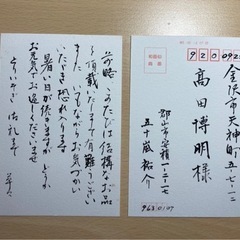 前略 このたびは結構なお品
を頂戴いたしまして有難うござい
ました いつもながらお気づかい
いただき恐れ入ります
暑い日が続きますが どうか
お元気でお過ごしくださいませ
とりいそぎ御礼まで
草々
920092
金沢市天神町
五一七一二
高田博明様
郡山市安積一二一七
五十嵐裕介
9630107